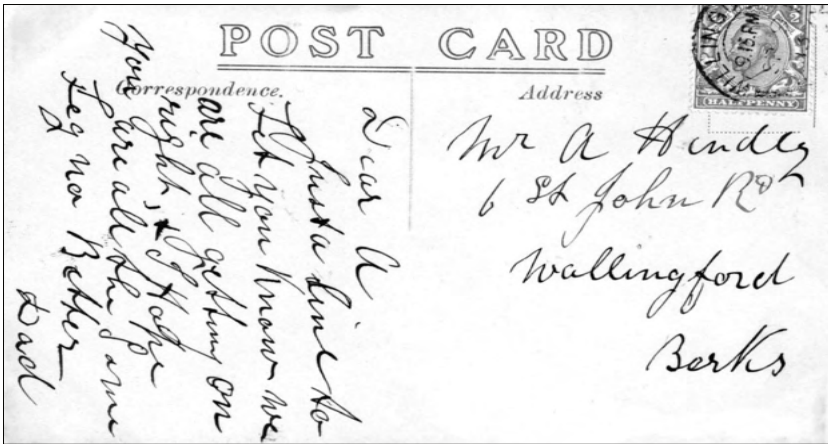 POST CARD
Correspondence.
Address
HALFPENNY
Dear A
Just a line to
let you know we
are all getting on
right, & I Hope
you are all the same
Leg no Better
Dad
Mr A Hindley
6 St John Rd
Wallingford
Berks